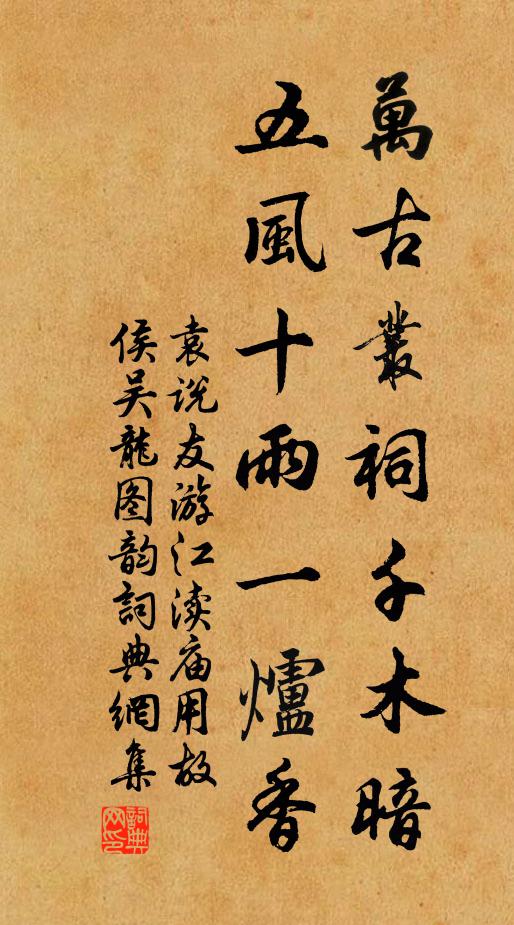 萬古叢祠千木暗
五風十雨一爐香
袁说友游江渎庙用故
侯吴龍图韵詞典網集
詞典网印